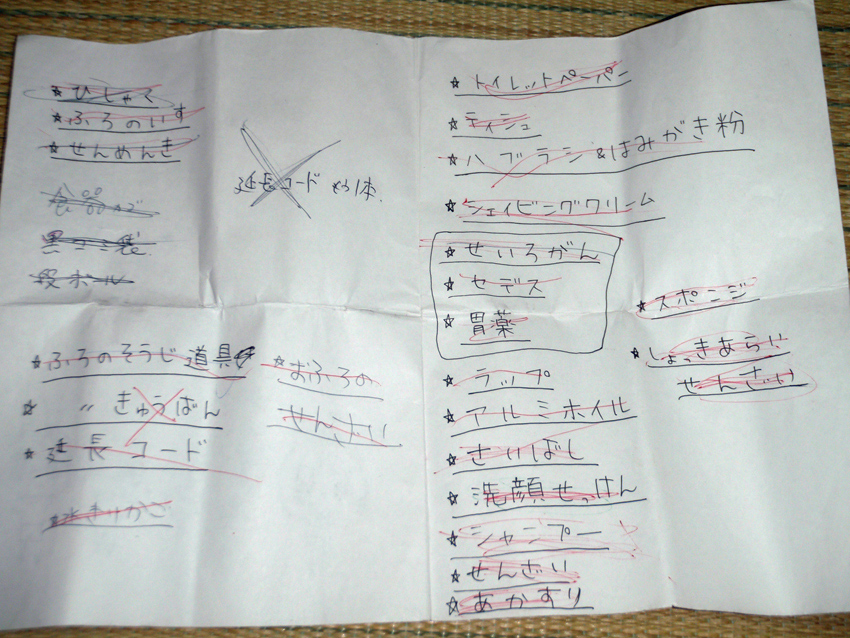 ☆ひしゃく
☆ふろのいす
☆せんめんき
黒ゴミ袋
段ボール
延長コード
1本
☆ふろのそうじ道具
☆〃きゅうばん
☆延長コード
水きりかご
☆おふろの
せんざい
☆トイレットペーパー
☆ティシュ
☆ハブラシ&はみがき粉
☆シェイビングクリーム
☆せいろがん
☆セデス
☆胃薬
☆ラップ
☆アルミホイル
☆さいばし
☆洗顔せっけん
☆シャンプー
☆せんざい
☆あかすり
☆スポンジ
☆しょっきあらい
せんざい